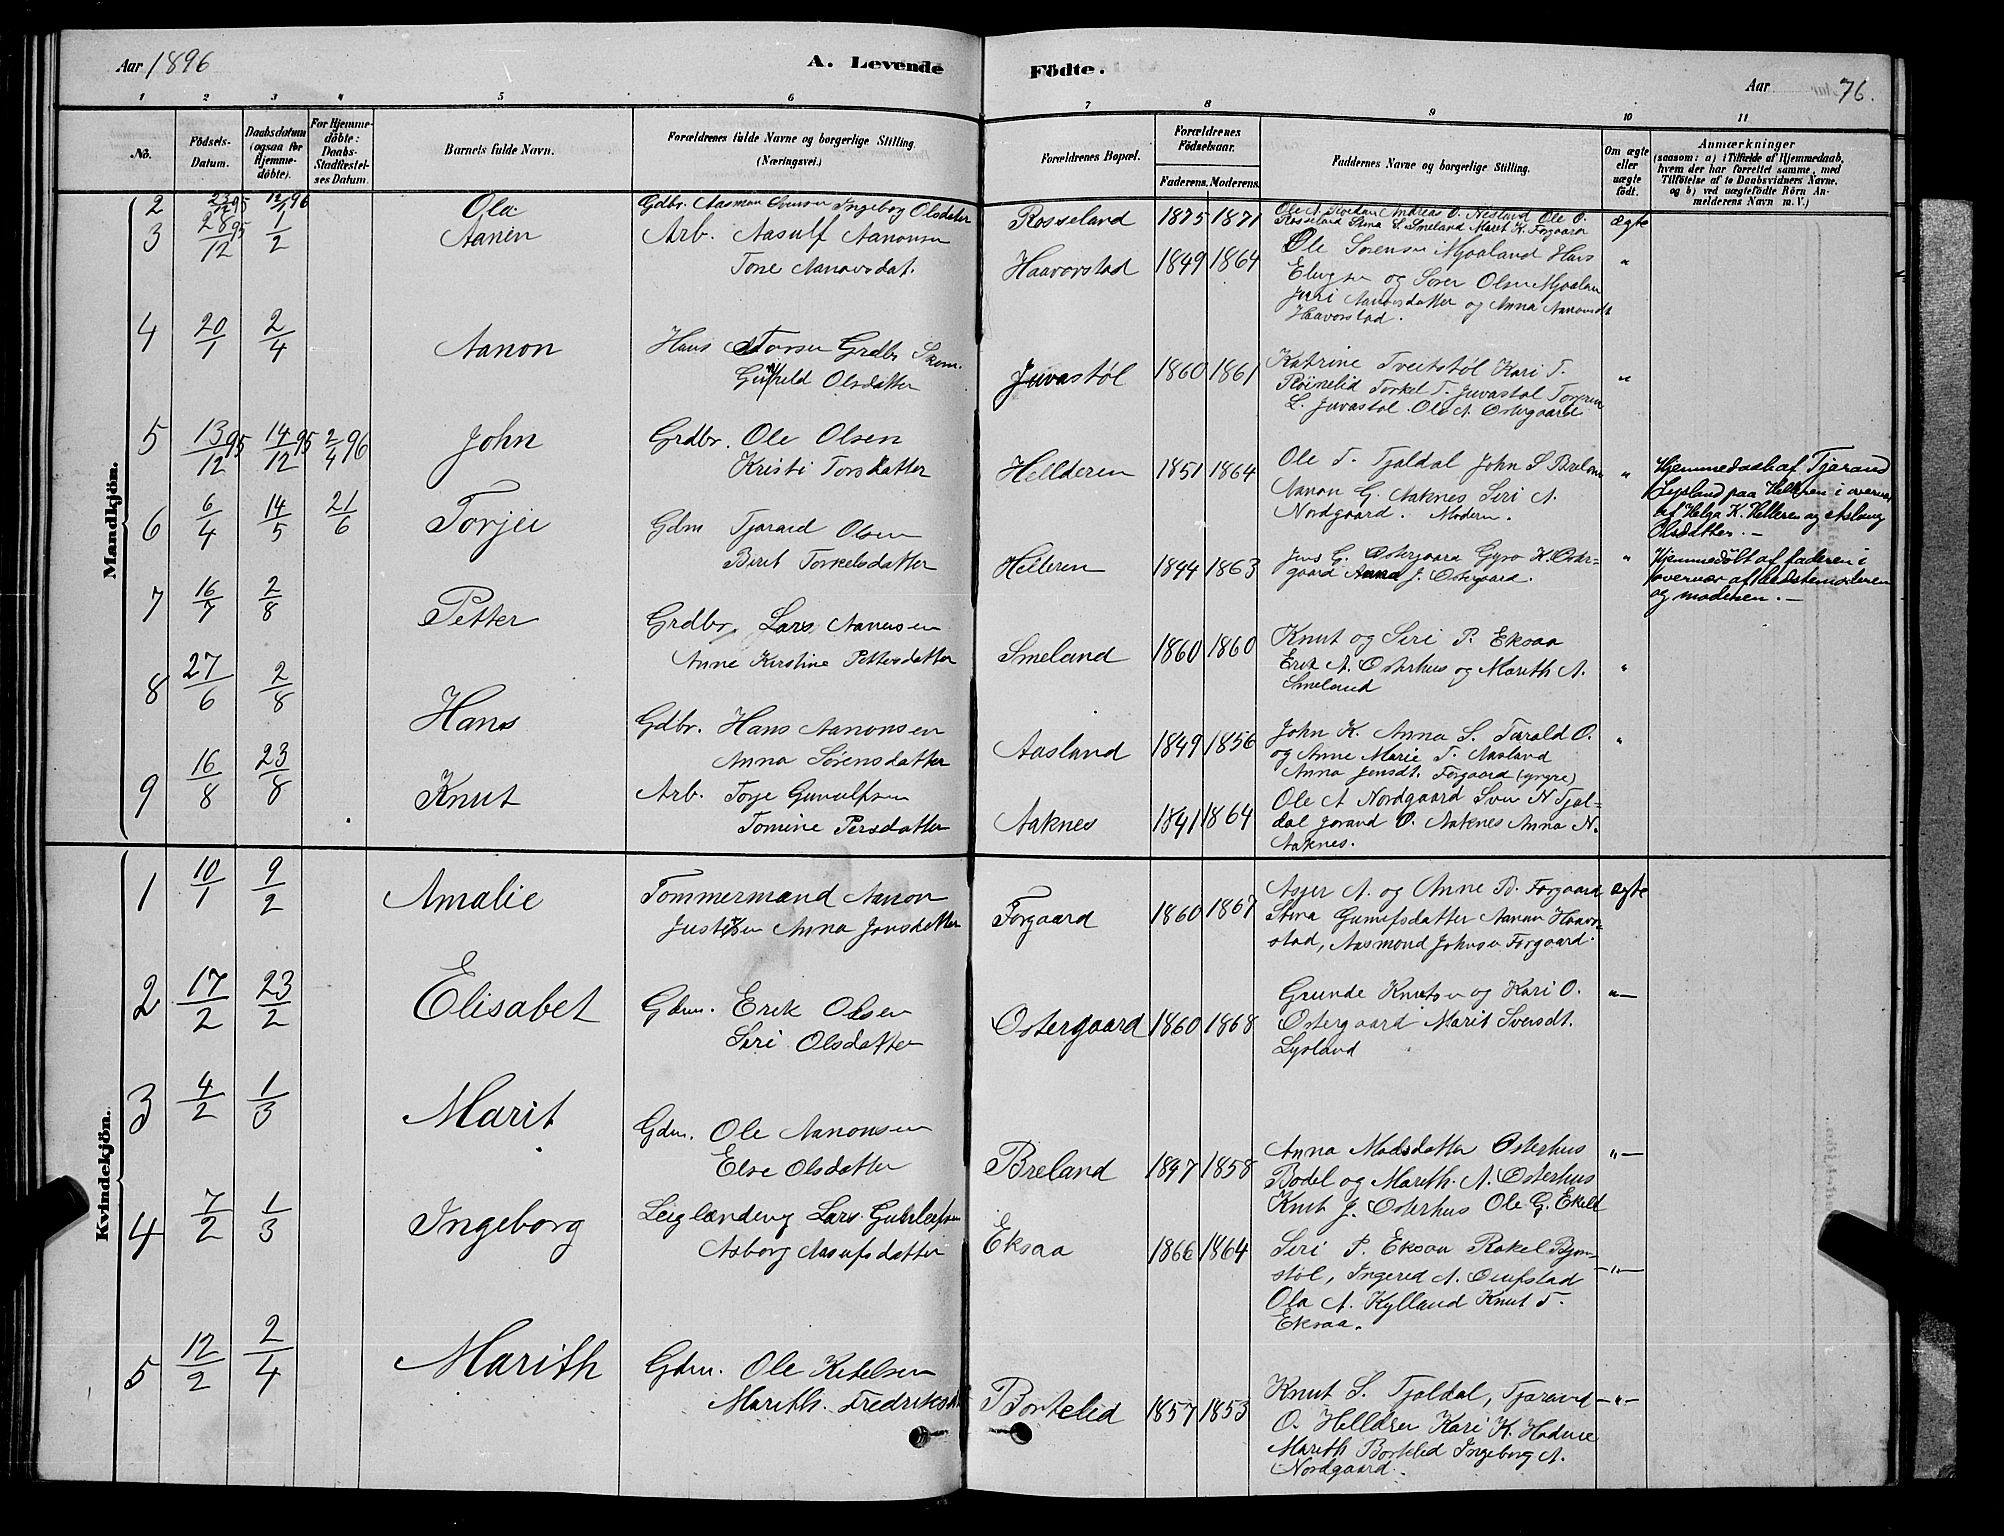 Aar 1896
A. Levende
Födte.
Aar
76.
1 2 3 4 5 6 7 8 9 10 11
No.
Födsels-Datum.
Daabsdatum (ogsaa for Hjemme-döbte).
For Hjemme-döbte: Daabs-Stadfæstel-ses Datum.
Barnets fulde Navn.
Forældrenes fulde Navne og borgerlige Stilling.
(Næringsvei.)
Forældrenes Bopæl.
Forældrenes Födselsaar.
Faderens. Moderens.
Faddernes Navne og borgerlige Stilling.
Om ægte eller uægte födt.
Anmærkninger
(saasom: a) i Tilfælde af Hjemmedaab,
hvem der har forrettet samme, med
Tilföielse af to Daabsvidners Navne.
og b) ved uægtefödte Börn An-
melderens Navn m. V.)
Mandkjön.
2 Ola Gdbr. Aasmon Ingeborg Olsdatter Rosseland 1875 1871 ægte
Andreas O. Nesland Ole O.
Rosseland Stina S. Smeland Marit K. Forgaard
3 28/12 95 1/2 Aanen Arb. Aasulf Aanonsen
Tone Aanonsdat. Haavorstad 1849 1864 "
Ole Sorensen Mjoaland Hans
og Soren Olsen
Juri Aanonsdatter og Anna Aanonsdt
Haavorstad.
4 20/1 2/4 Aanon Hans Torsen Grdbr
Olsdatter Juvastøl 1860 1861 "
Katrine Tveitstøl Kari T.
Røinelid Torkel T. Juvastøl
L. Juvastøl Ole A. Ostergaard
5 13/12 95 14/12 95 2/4 96 John Grdbr. Ole Olsen
Kristi Torsdatter Hellderen 1851 1864 "
Ole T. Tjaldal John S.
Aanon G. Aaknes Seri A.
Nordgaard. Moderen.
Hjemmedaab af Tjarand
Lysland paa Helleren i overvær
af Helga K. Helleren og Aslaug
Olsdatter. -
6 6/4 14/5 21/6 Torjei Gdm Tjarand Olsen
Berit Torkelsdatter Helleren 1844 1863 "
Jens G. Ostergaard Gyro K. Oster-
gaard Anna J. Ostergaard.
Hjemmedøbt af faderen i
overvær af bedstemoderen
og moderen. -
7 16/7 2/8 Petter Grdbr. Lars Aanensen
Anne Kirstine Pettersdatter Smeland 1860 1860 "
Knut og Seri P. Eksaa
Erik A. Osterhus og Marith A.
Smeland
8 27/6 2/8 Hans Gdbr. Hans Aanonsen
Anna Sørensdatter Aasland 1849 1856 "
John K. Anna S. Tarald O.
og Anne Marie T. Aasland
Anna Jensdt. Forgaard (yngre)
9 16/8 23/8 Knut Arb. Torje Gunulfsen
Tomine Persdatter Aaknes 1841 1864
Ole A Nordgaard Sven N Tjal-
dal Jorand O. Aaknes Anna N.
Aaknes.
Kvindekjön.
1 10/1 9/2 Amalie Tommermand Aanon
Justsen Anna Jonsdatter Forgaard 1860 1867 ægte
Asjer A. og Anne B. Forgaard
Stina Gumufsdatter Aanon Haavor-
stad, Aasmond Johnsen Forgaard.
2 17/2 23/2 Elisabet Gdm. Erik Olsen
Siri Olsdatter Ostergaard 1860 1868 "-
Grunde Knutsen og Kari O.
Ostergaard Marit Svensdt.
Lysland
3 4/2 1/3 Marit Gdm. Ole Aanonsen
Elve Olsdatter Breland 1847 1858 "-
Anna Madsdatter Osterhus
Bodel og Marith A. Osterhus
Knut J. Osterhus Ole G. Ekeld
4 7/2 1/3 Ingeborg Leiglænding Lars Gunleifsen
Asborg Aasufsdatter Eksaa 1866 1864 -"-
Seri P. Eksaa Rakel Bjon-
støl, Ingered A.
Ola A. Kylland Knut T.
Eksaa.
5 12/2 2/4 Marith Gdm. Ole Ketelsen
Marith Fredriksdt Bortelid 1857 1853 -"-
Knut S. Tjaldal, Tjarand
O. Hellderen Kari K.
Marith Bortelid Ingeborg A.
Nordgaard.